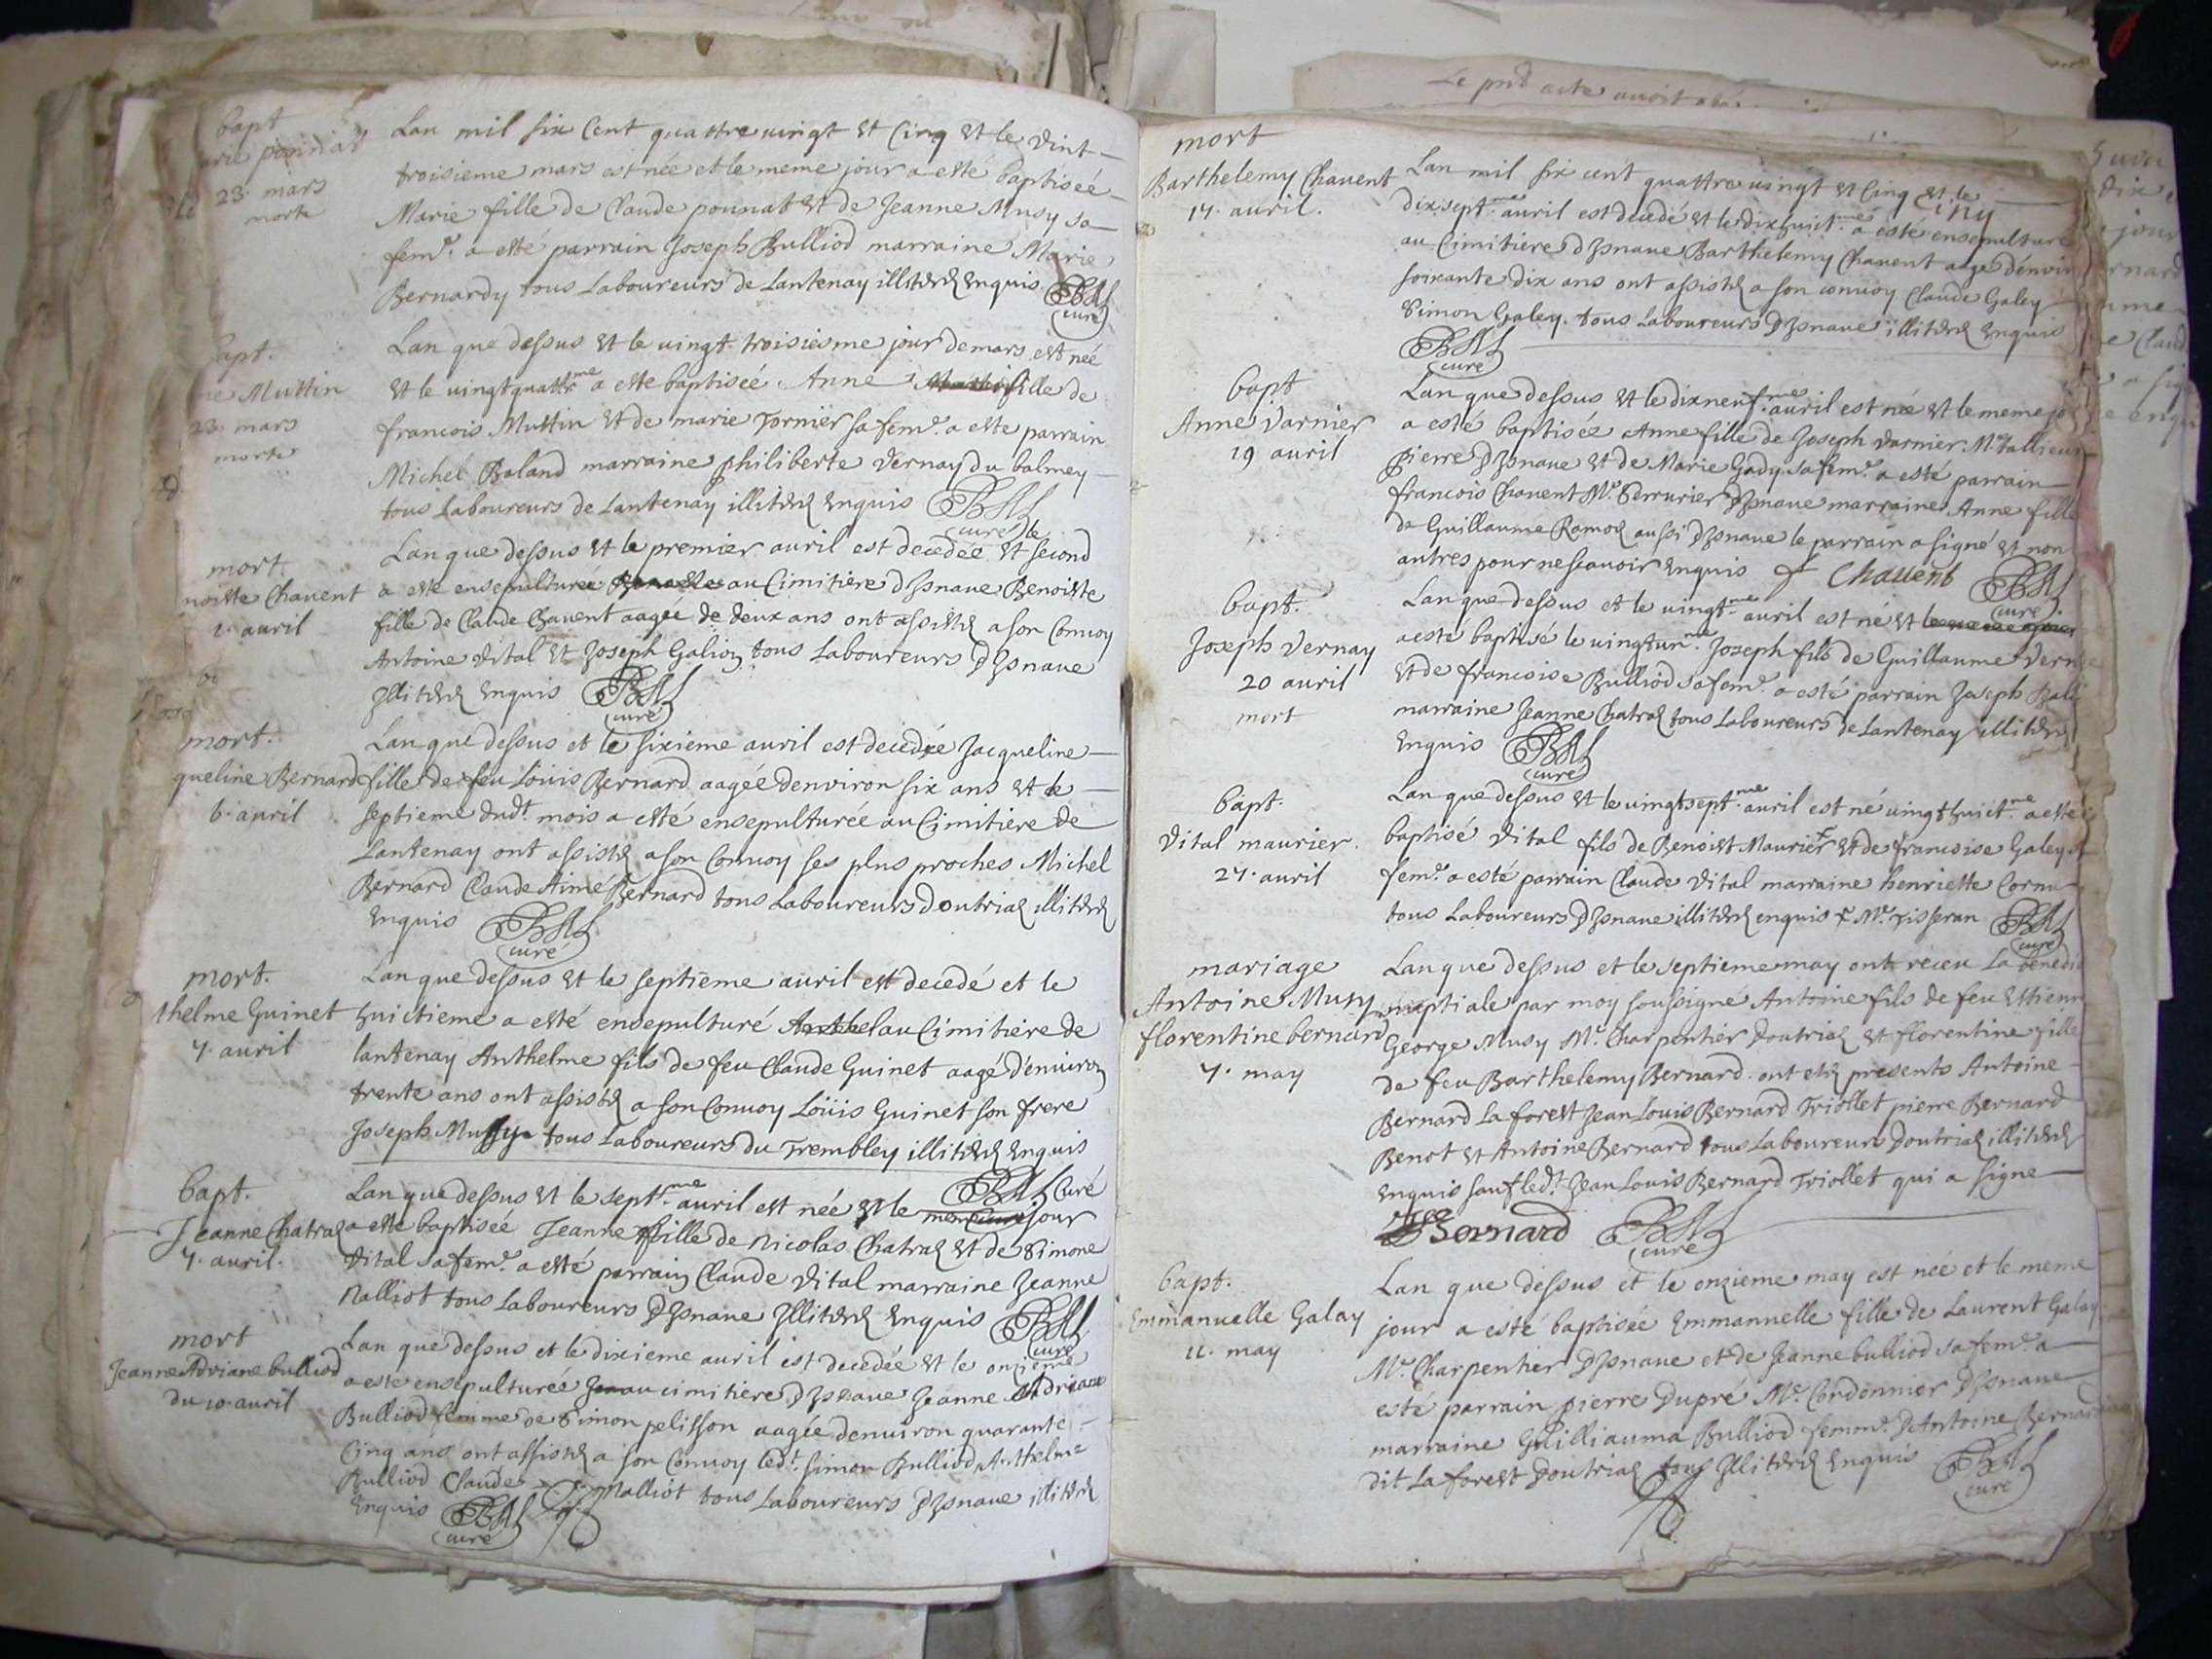 bapt
23. mars
morte
Lan mil six Cent quattre uingt et Cinq et le vint
troisieme mars est née et le meme jour a esté baptiséé
Marie fille de Claude ponnat et de Jeanne Musy sa
feme. a esté parrain Joseph Bulliod marraine Marie
Bernardy tous Laboureurs de Lantenay illiterés enquis
curé
apt.
ne Muttin
23. mars
morte
Lan que dessus et le uingt troisiesme jour de mars est née
et le uingtquattrme a este baptiséé Anne fille de
francois Muttin et de marie Tornier sa feme. a este parrain
Michel Baland marraine philiberte Vernay du balmey
tous Laboureurs de Lantenay illiterés enquis
curé
mort.
noiste Chauent
1. auril
Lan que dessus et le premier auril est decedéé et le second
a este ensepulturéé au Cimitiere dIsnaue Benoiste
fille de Claude Chauent aagéé de deux ans ont assistés a son Conuoy
Antoine vital et Joseph Galion tous Laboureurs dIsnaue
Illiterés enquis
curé
mort.
queline Bernard
6. auril
Lan que dessus et le sixieme auril est decedéé Jacqueline
fille de feu Loüis Bernard aagéé denuiron six ans et le
septieme dudt. mois a esté ensepulturéé au Cimitiere de
Lantenay ont assistés a son Conuoy ses plus proches Michel
Bernard Claude Aimé Bernard tous Laboureurs doutrias illiterés
enquis
curé
mort.
thelme Guinet
7. auril
Lan que dessus et le septieme auril est decedé et le
huictieme a esté ensepulturé Anthel au Cimitiere de
lantenay Anthelme fils de feu Claude Guinet aagé d'enuiron
trente ans ont assistés a son Conuoy Loüis Guinet son frere
Joseph Mussy tous Laboureurs du Trembley illiterés enquis
Curé
bapt.
Jeanne Chatras
7. auril.
Lan que dessus et le septme. auril est née et le jour
a esté baptisée Jeanne fille de nicolas Chatras et de Simone
Vital sa feme. a esté parrain Claude Vital marraine Jeanne
nalliot tous Laboureurs dIsnaue Illiterés enquis
curé
mort
Jeanne Adriane bulliod
du 10. auril
Lan que dessus et le dixieme auril est decedéé et le onzieme
a este ensepulturéé au cimitiere dIsnaue Jeanne Adriane
Bulliod femme de Simon pelisson aagéé denuiron quarante
Cinq ans ont assistés a son Conuoy ledt. simon Bulliod Anthelme
Bulliod Claude nalliot tous Laboureurs dIsnaue illiterés
enquis
curé
Le pnt acte auoit
mort
Barthelemy Chauent
17. auril.
Lan mil six cent quattre uingt et Cinq et le
dixseptme. auril est decedé et le dixhuitme. a esté ensepulturé
au Cimitiere dIsnaue Barthelemy Chauent aagé d'enuir
soixante dix ans ont assistés a son conuoy Claude Galey
Simon Galey. tous Laboureurs dIsnaue illiterés enquis
curé
bapt
Anne Varnier
19 auril
Lan que dessus et le dixneufme. auril est née et le meme jo
a esté baptiséé Anne fille de Joseph Varnier Me. Tallieur
pierre dIsnaue et de Marie Gady sa feme. a esté parrain
francois Chauent Me. Serrurier dIsnaue marraine Anne fille
de Guillaume Ramos aussi dIsnaue le parrain a signé et non
autres pour ne scauoir enquis f Chauent
curé
bapt.
Joseph Vernay
20 auril
mort
Lan que dessus et le uingtme. auril est né et le
a esté baptisé le uingtunme. Joseph fils de Guillaume Vern
et de francoise Bulliod sa feme. a esté parrain Joseph Bal
marraine Jeanne Chatras tous Laboureurs de Lantenay illiterés
enquis
curé
bapt.
Vital maurier.
27. auril
Lan que dessus et le uingtseptme. auril est né uingthuictme a esté
baptisé Vital fils de Benoist Maurier et de francoise Galey sa
feme. a esté parrain Claude Vital marraine henriette Cornu
tous Laboureurs dIsnaue illiterés enquis Me. Tisseran
curé
mariage
Antoine Musy
florentine bernard
7. may
Lan que dessus et le septieme may ont receu La benedi
nuptiale par moy soussigné Antoine fils de feu Ettienn
George Musy Me. Charpentier doutrias et florentine fille
de feu Barthelemy Bernard. ont etés presents Antoine
Bernard La forest Jean Louis Bernard Triollet pierre Bernard
Benot et Antoine Bernard tous Laboureurs doutrias illiterés
enquis sauf ledt. Jean Louis Bernard Triollet qui a signe
Bernard
curé
bapt.
Emmanuelle Galay
11. may
Lan que dessus et le onzieme may est née et le meme
jour a esté baptisée Emmanuelle fille de Laurent Galay
Me. Charpentier dIsnaue et de Jeanne bulliod sa feme. a
esté parrain pierre Dupré Me. Cordonnier dIsnaue
marraine Guilliauma Bulliod femme. dAntoine Bernard
dit La forest doutrias tous Illiterés enquis
curé